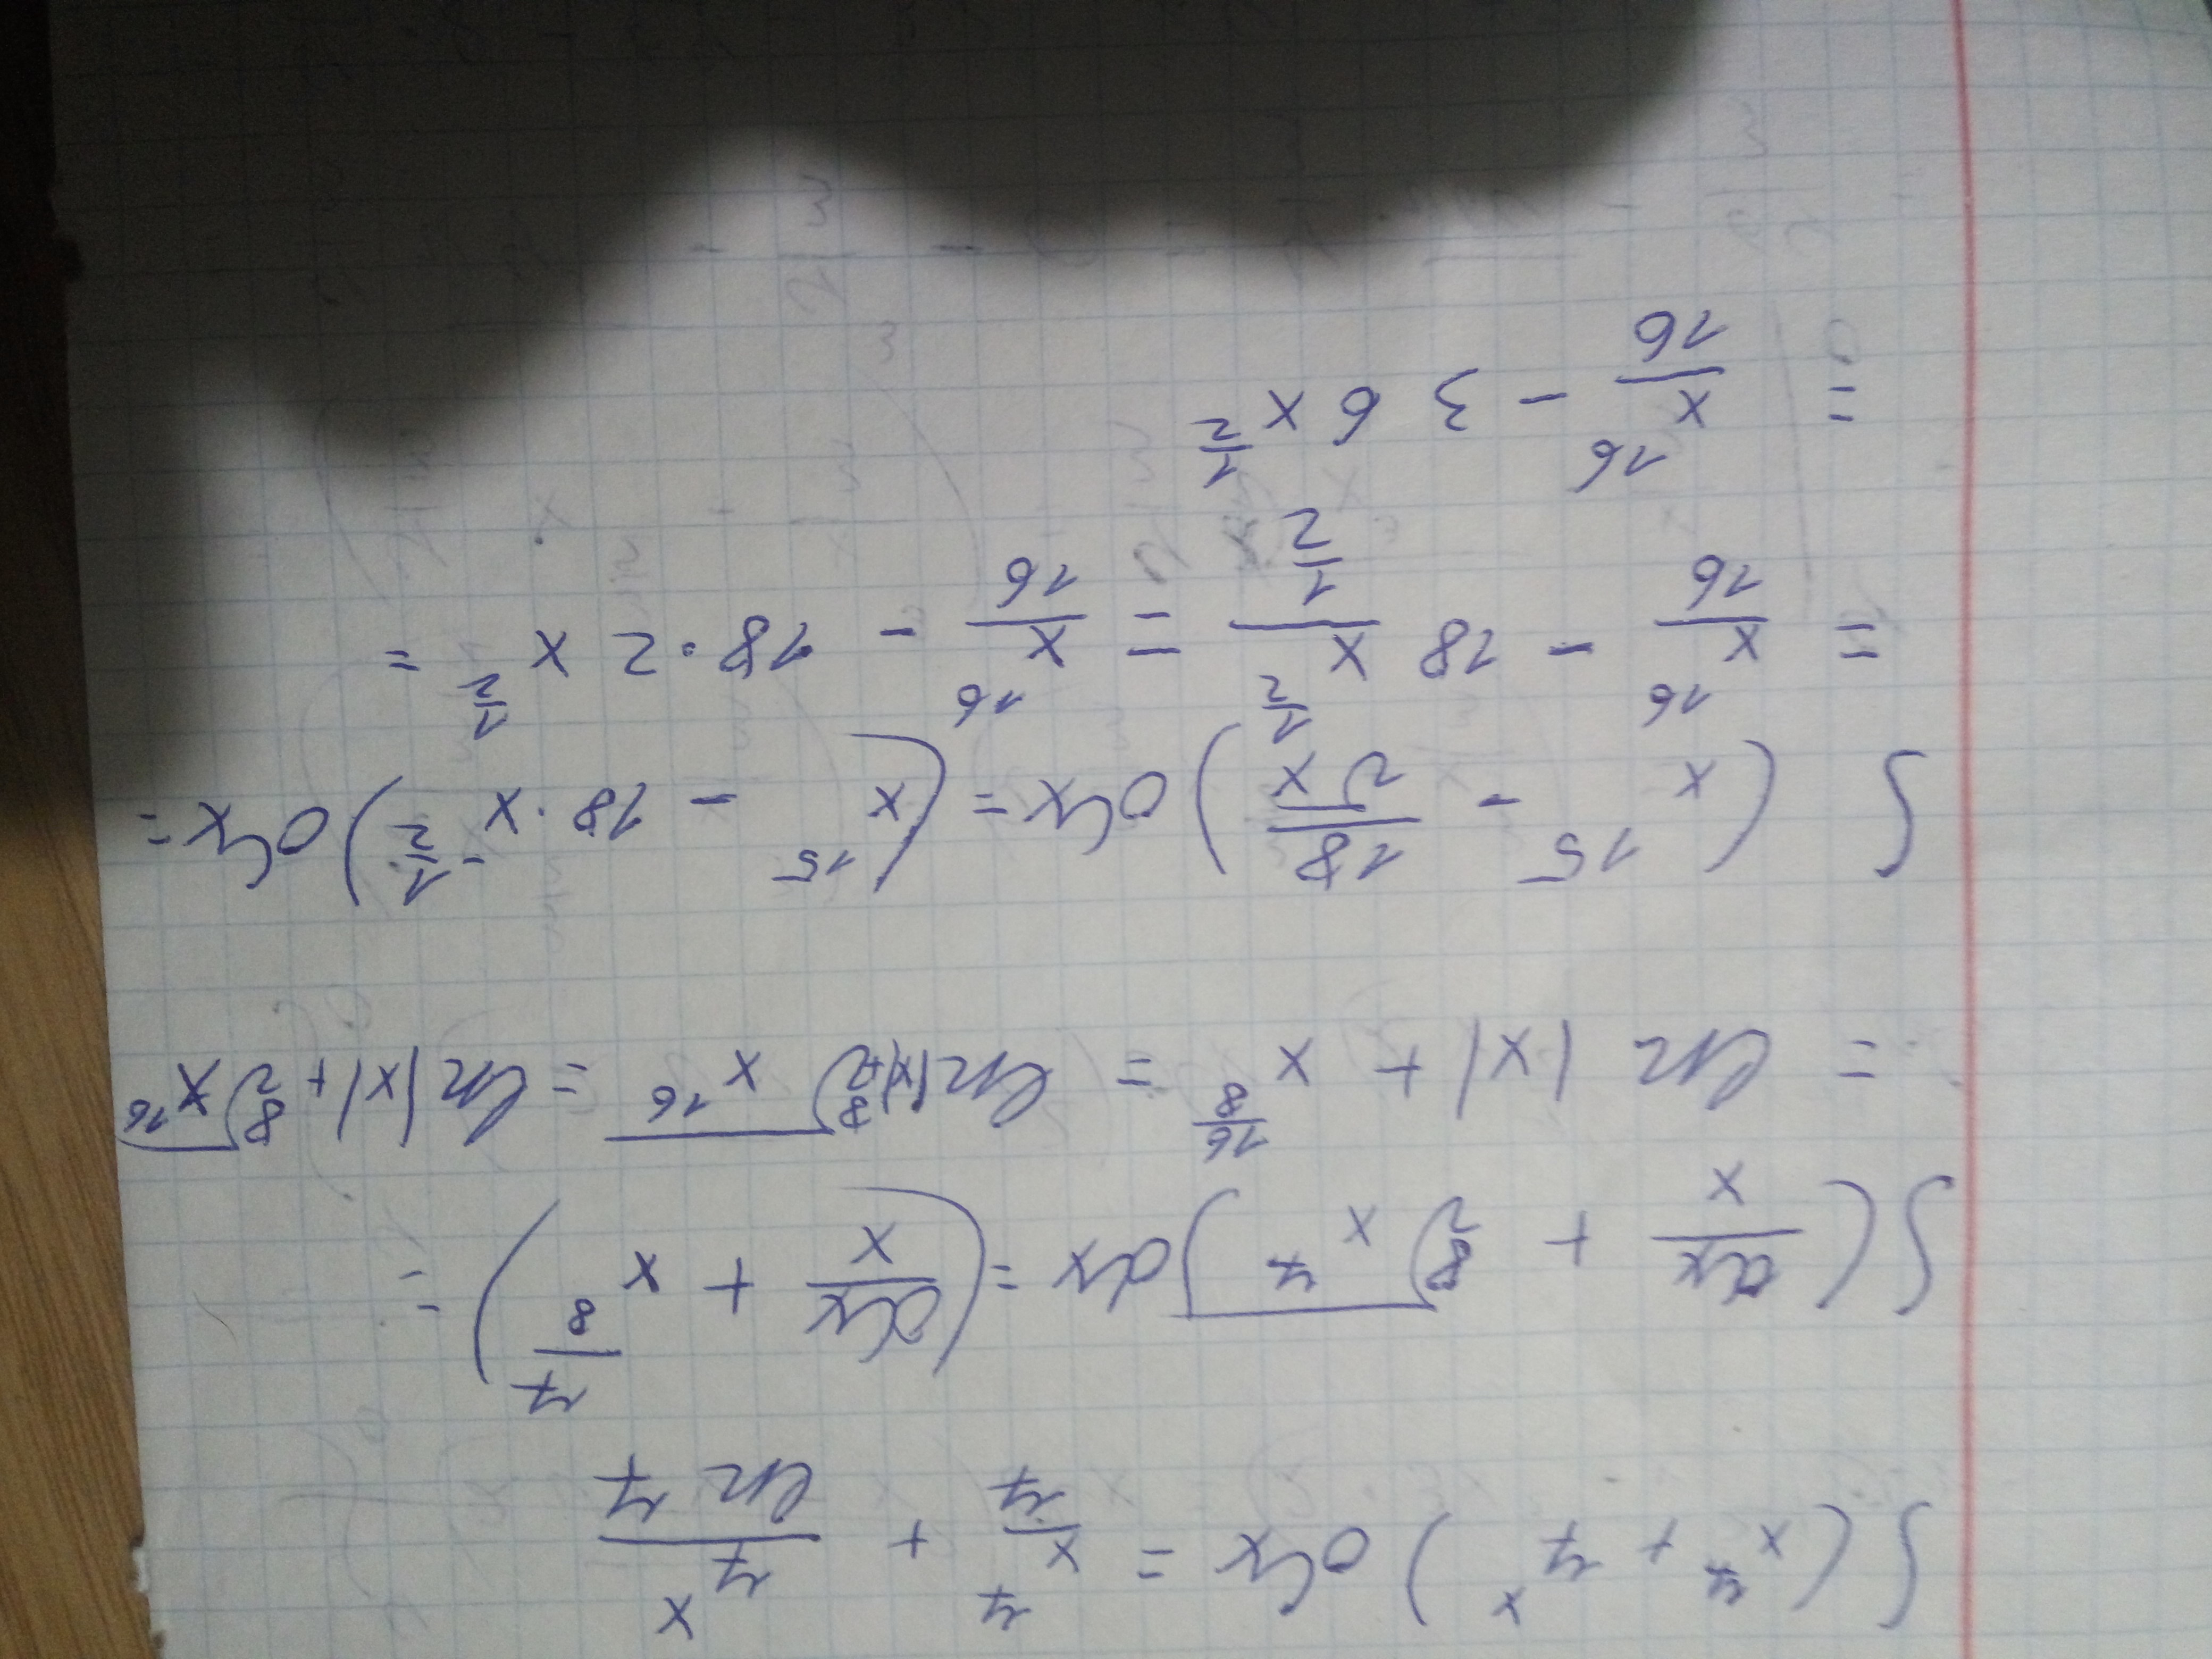 ∫(x⁷ + 7ˣ)dx = x⁷/7 + 7ˣ/ln 7
∫(dx/x + ⁸√x⁷)dx = (dx/x + x^(7/8)) =
= ln |x| + x^(16/8) = ln|x|+ ⁸√x¹⁶ = ln |x| + ⁸√x¹⁶
∫(x¹⁵ - 18/√x)dx = (x¹⁵ - 18·x^(-1/2))dx =
= x¹⁶/16 - 18 x^(1/2)/(1/2) = x¹⁶/16 - 18·2x^(1/2) =
= x¹⁶/16 - 36x^(1/2)